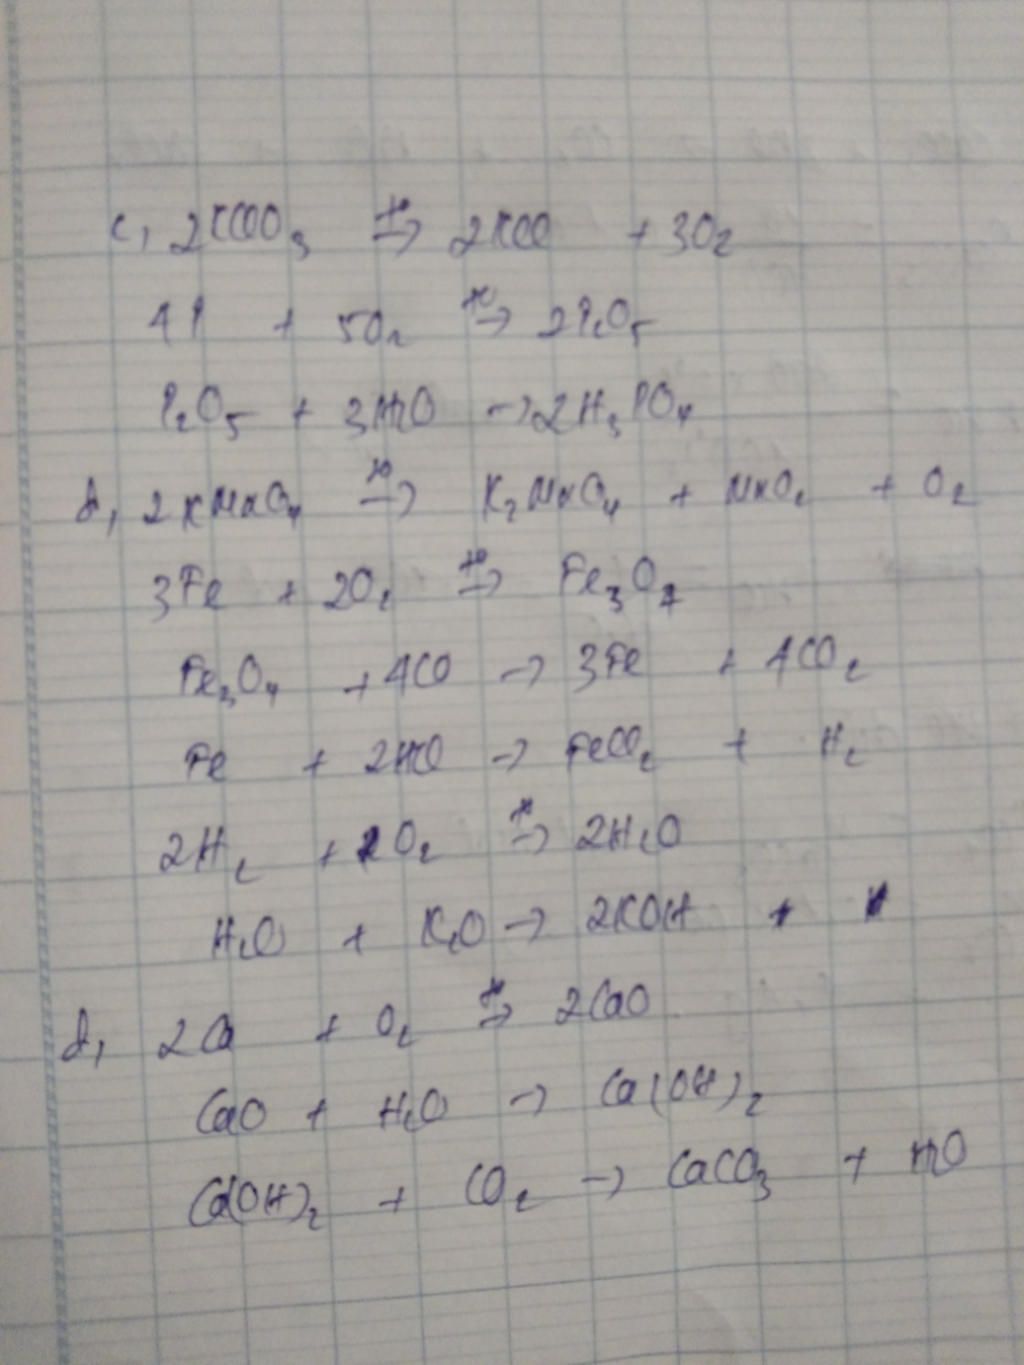 c, 2KClO₃ →(t°) 2KCl + 3O₂
4P + 5O₂ →(t°) 2P₂O₅
P₂O₅ + 3H₂O → 2H₃PO₄
d, 2KMnO₄ →(t°) K₂MnO₄ + MnO₂ + O₂
3Fe + 2O₂ →(t°) Fe₃O₄
Fe₃O₄ + 4CO → 3Fe + 4CO₂
Fe + 2HCl → FeCl₂ + H₂
2H₂ + O₂ →(t°) 2H₂O
H₂O + K₂O → 2KOH +
d, 2Ca + O₂ →(t°) 2CaO
CaO + H₂O → Ca(OH)₂
Ca(OH)₂ + CO₂ → CaCO₃ + H₂O